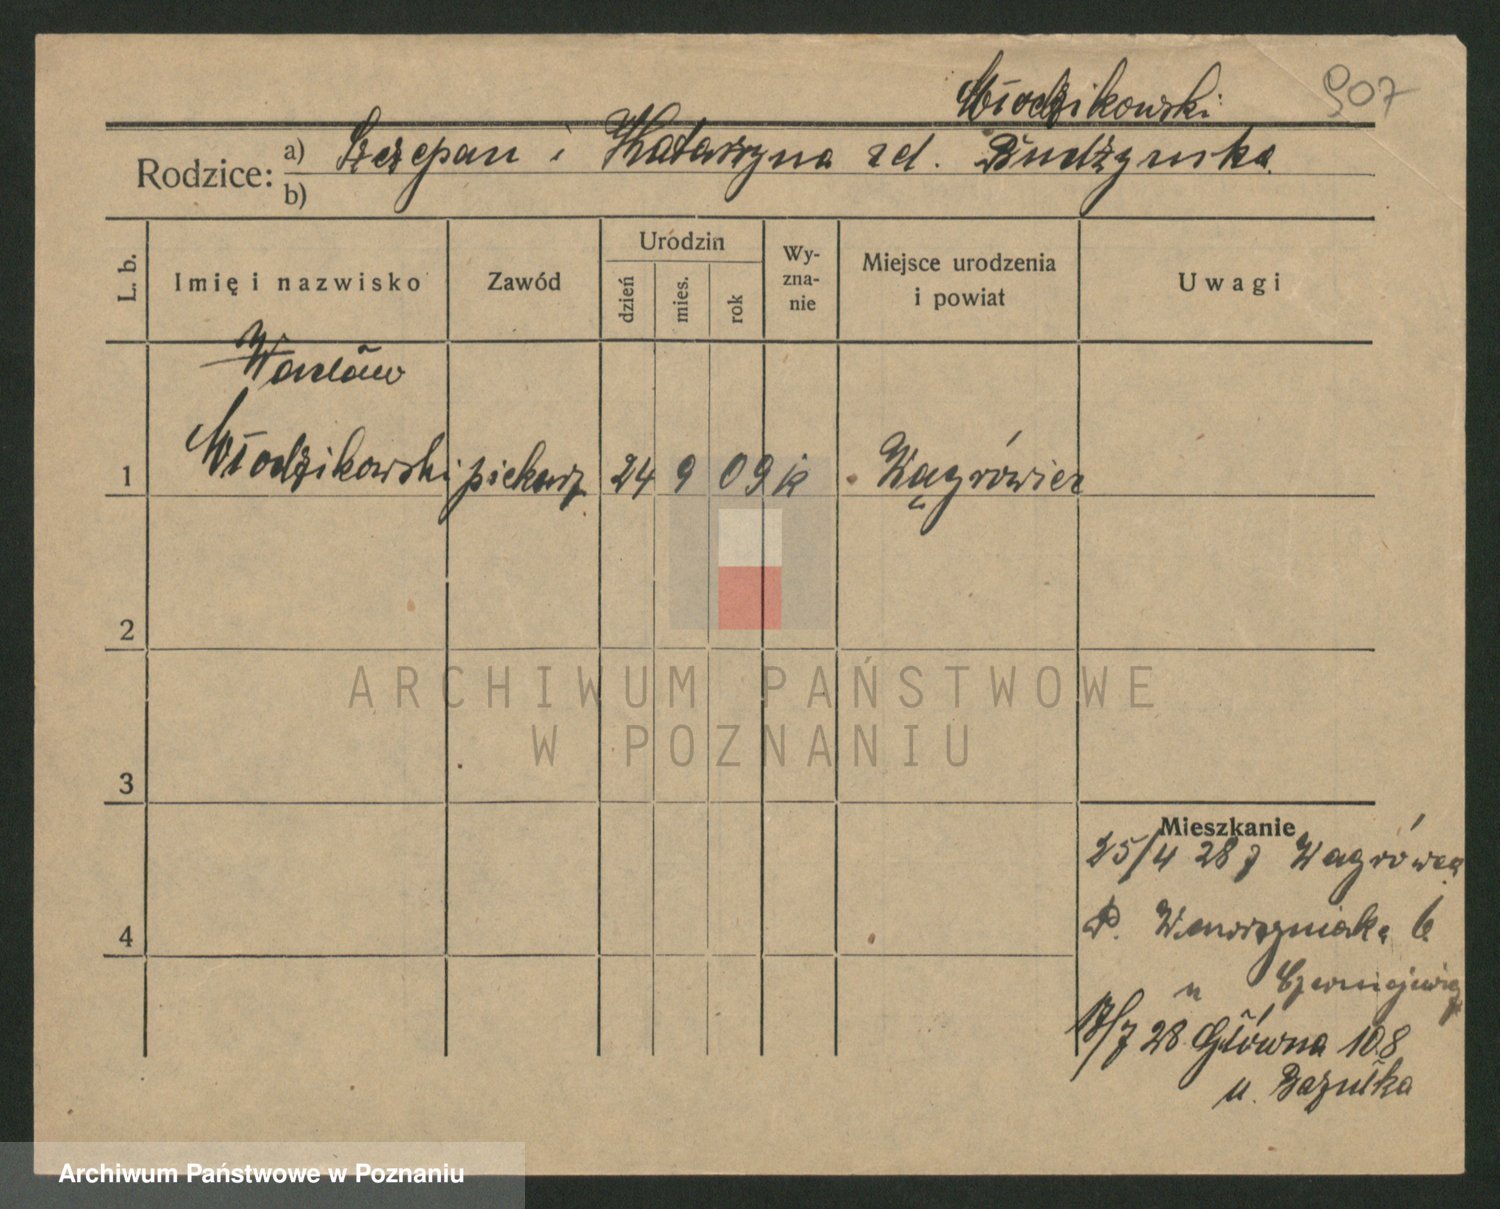 Młodzikowski
907
Rodzice: a) Szczepan i Katarzyna zd. Budzyńska
b)
L. b.
Imię i nazwisko
Zawód
Urodzin
dzień
mies.
rok
Wy-
zna-
nie
Miejsce urodzenia
i powiat
Uwagi
Wacław
1 Młodzikowski piekarz 24 9 09 k Wągrówiec
2
ARCHIWUM PAŃSTWOWE
W POZNANIU
3
Mieszkanie
25/4 28 z Wągrówca
4
P. Wawrzyniaka
u
17/7 28 Główna 108
u.
Archiwum Państwowe w Poznaniu